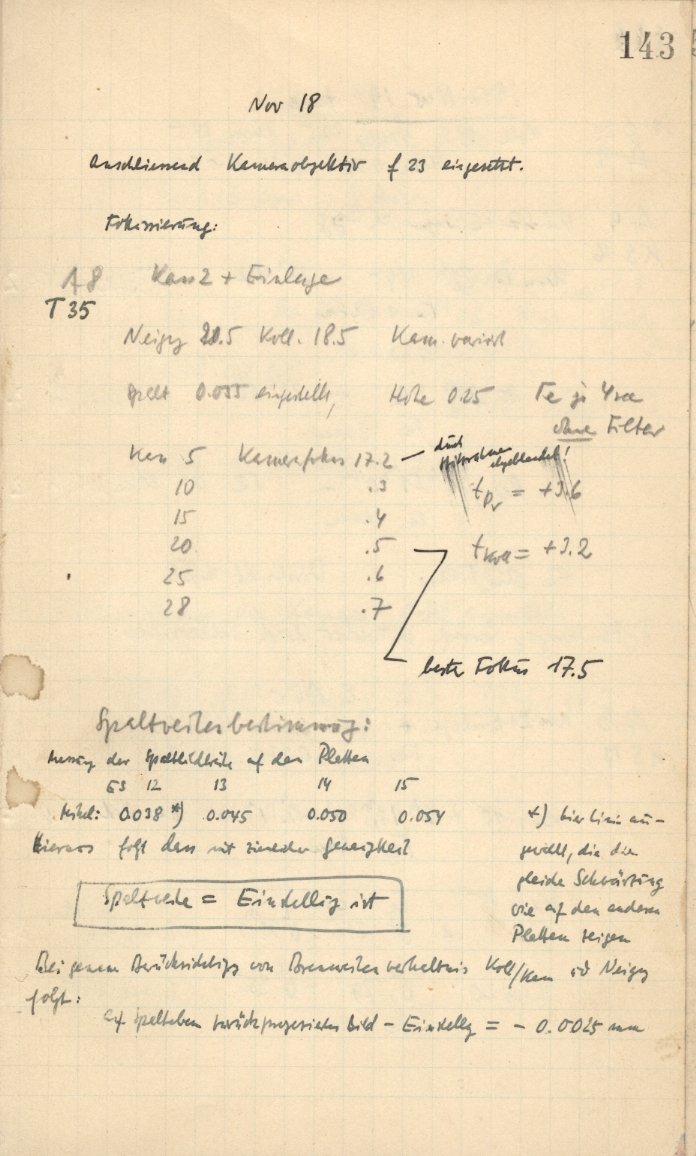 143
Nov 18
Anschliessend Kameraobjektiv f 23 eingesetzt.
Fokussierung:
A8 Kass 2 + Einlage
T 35
Neigg 20.5 Koll. 18.5 Kam. variirt
Spalt 0.055 eingestellt, Höhe 0.25 Fe je 4
ohne Filter
Kass 5 Kamerafokus 17.2 — durch
abgeblendet!
10 .3 t = +3.6
15 .4
20 .5 tKoll = +3.2
25 .6
28 .7
bester Fokus 17.5
Spaltweitenbestimmung:
Messung der Spaltbildbreite auf den Platten
12 13 14 15
Mittel: 0.038 *) 0.045 0.050 0.054
*) hier Linien aus-
gewählt, die die
gleiche Schwärzung
wie auf den anderen
Platten zeigen
Hieraus folgt dass mit ziemlicher Genauigkeit
Spaltweite = Einstellung ist
Bei genauer Berücksichtigg von Brennweitenverhältnis Koll/Kam und Neigg
folgt:
auf Spaltebene zurückprojeziertes Bild – Einstellg = – 0.0025 mm